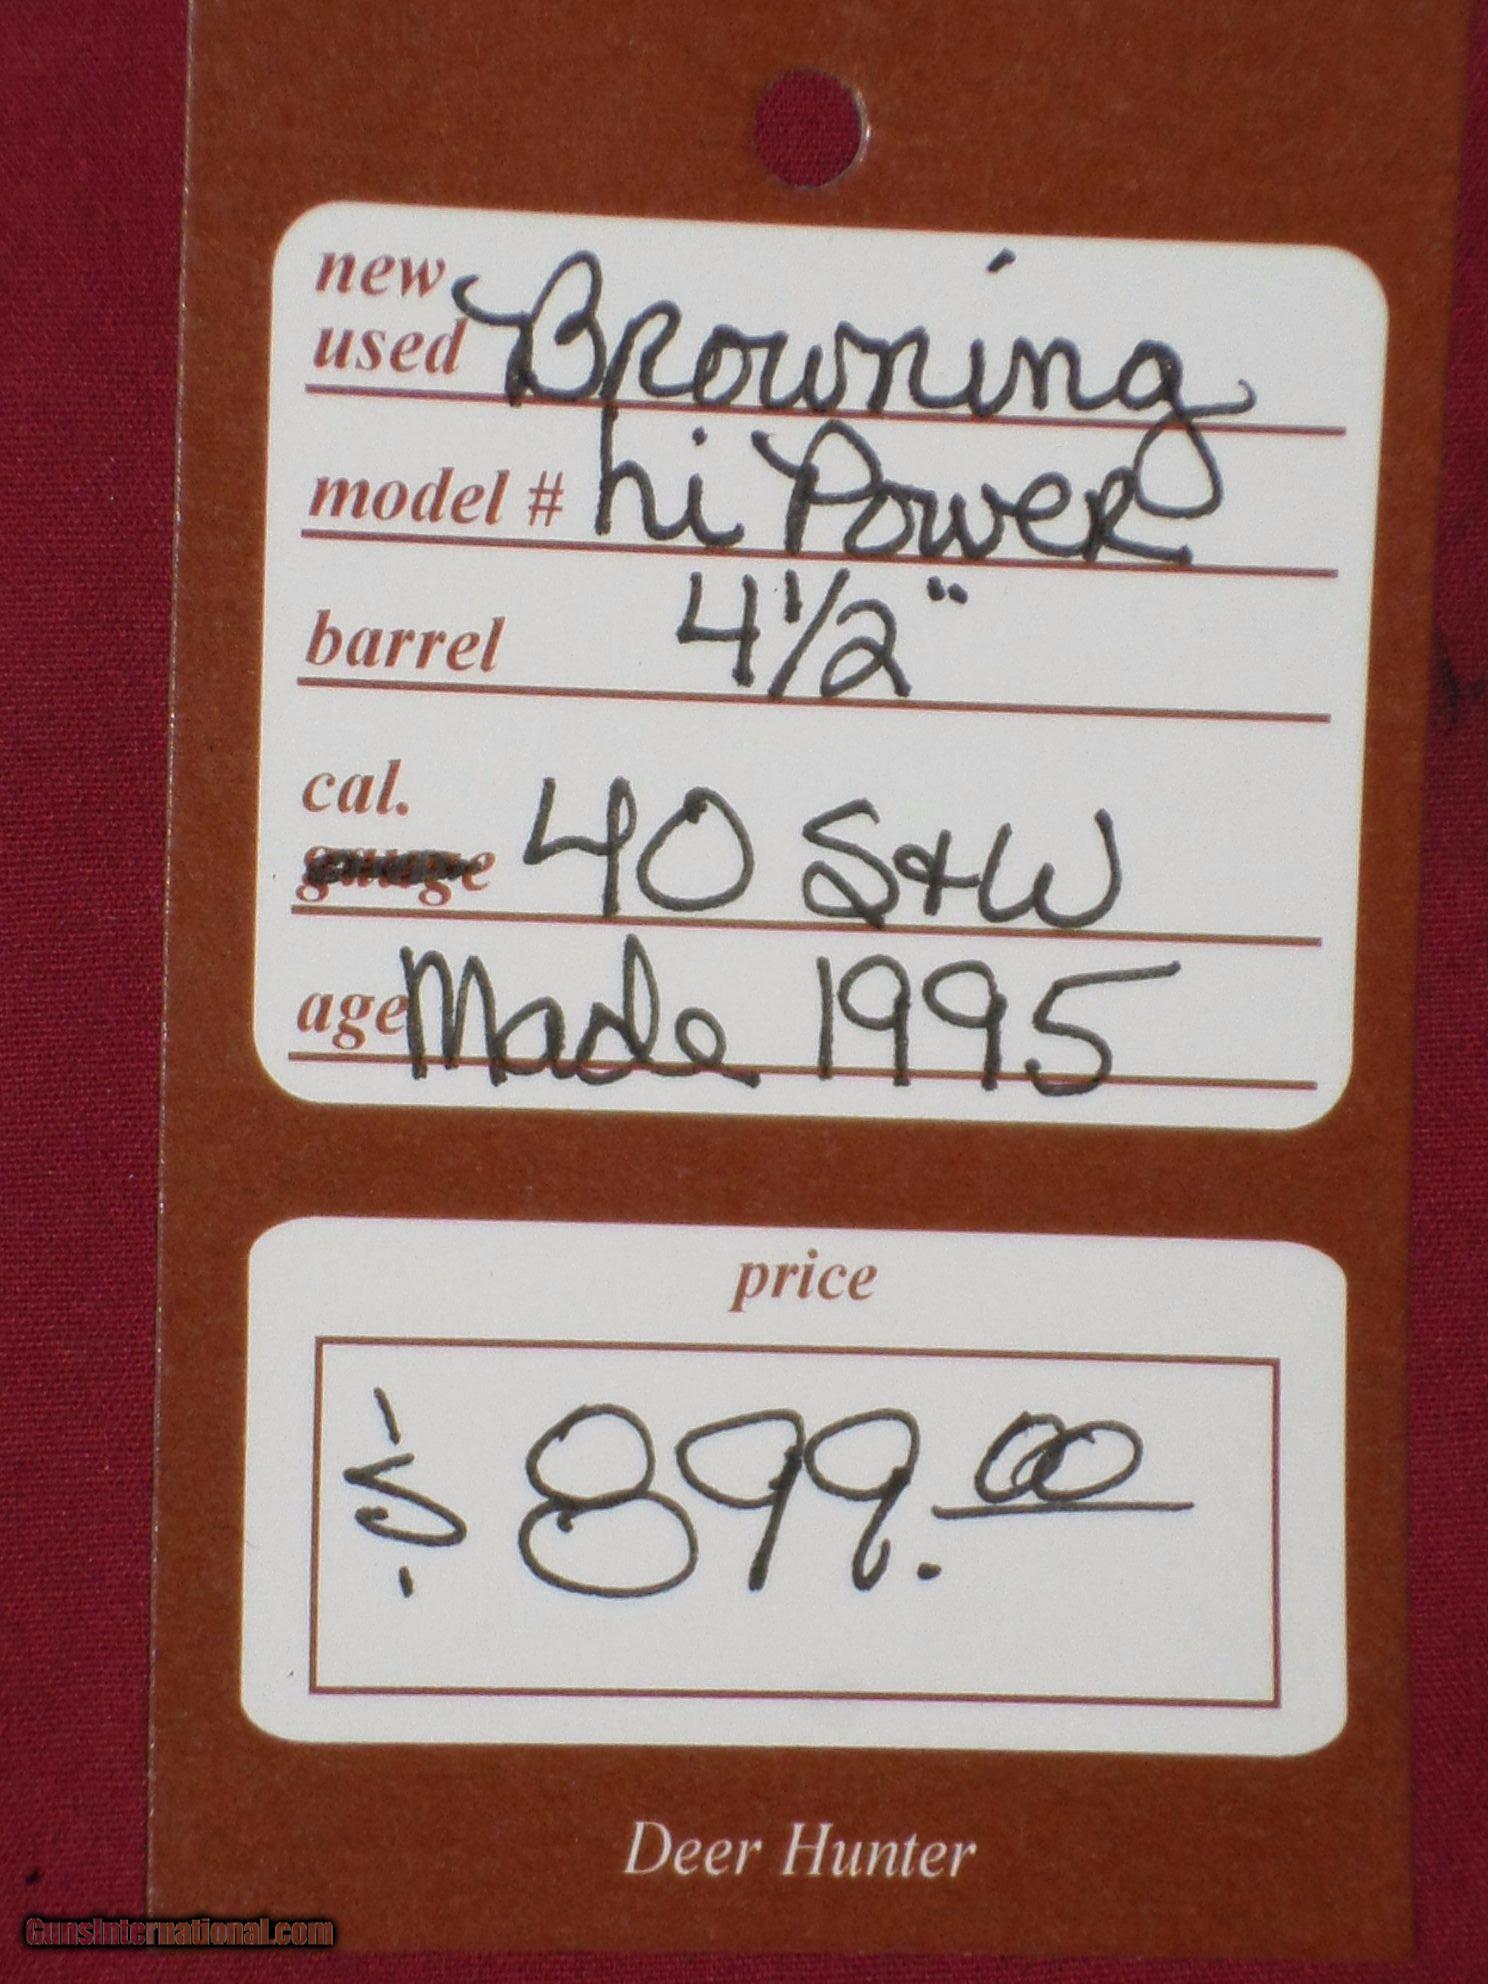 new
used Browning
model # hi Power
barrel 4 1/2"
cal.
gauge 40 S&W
age Made 1995
price
$ 899.00
Deer Hunter
GunsInternational.com